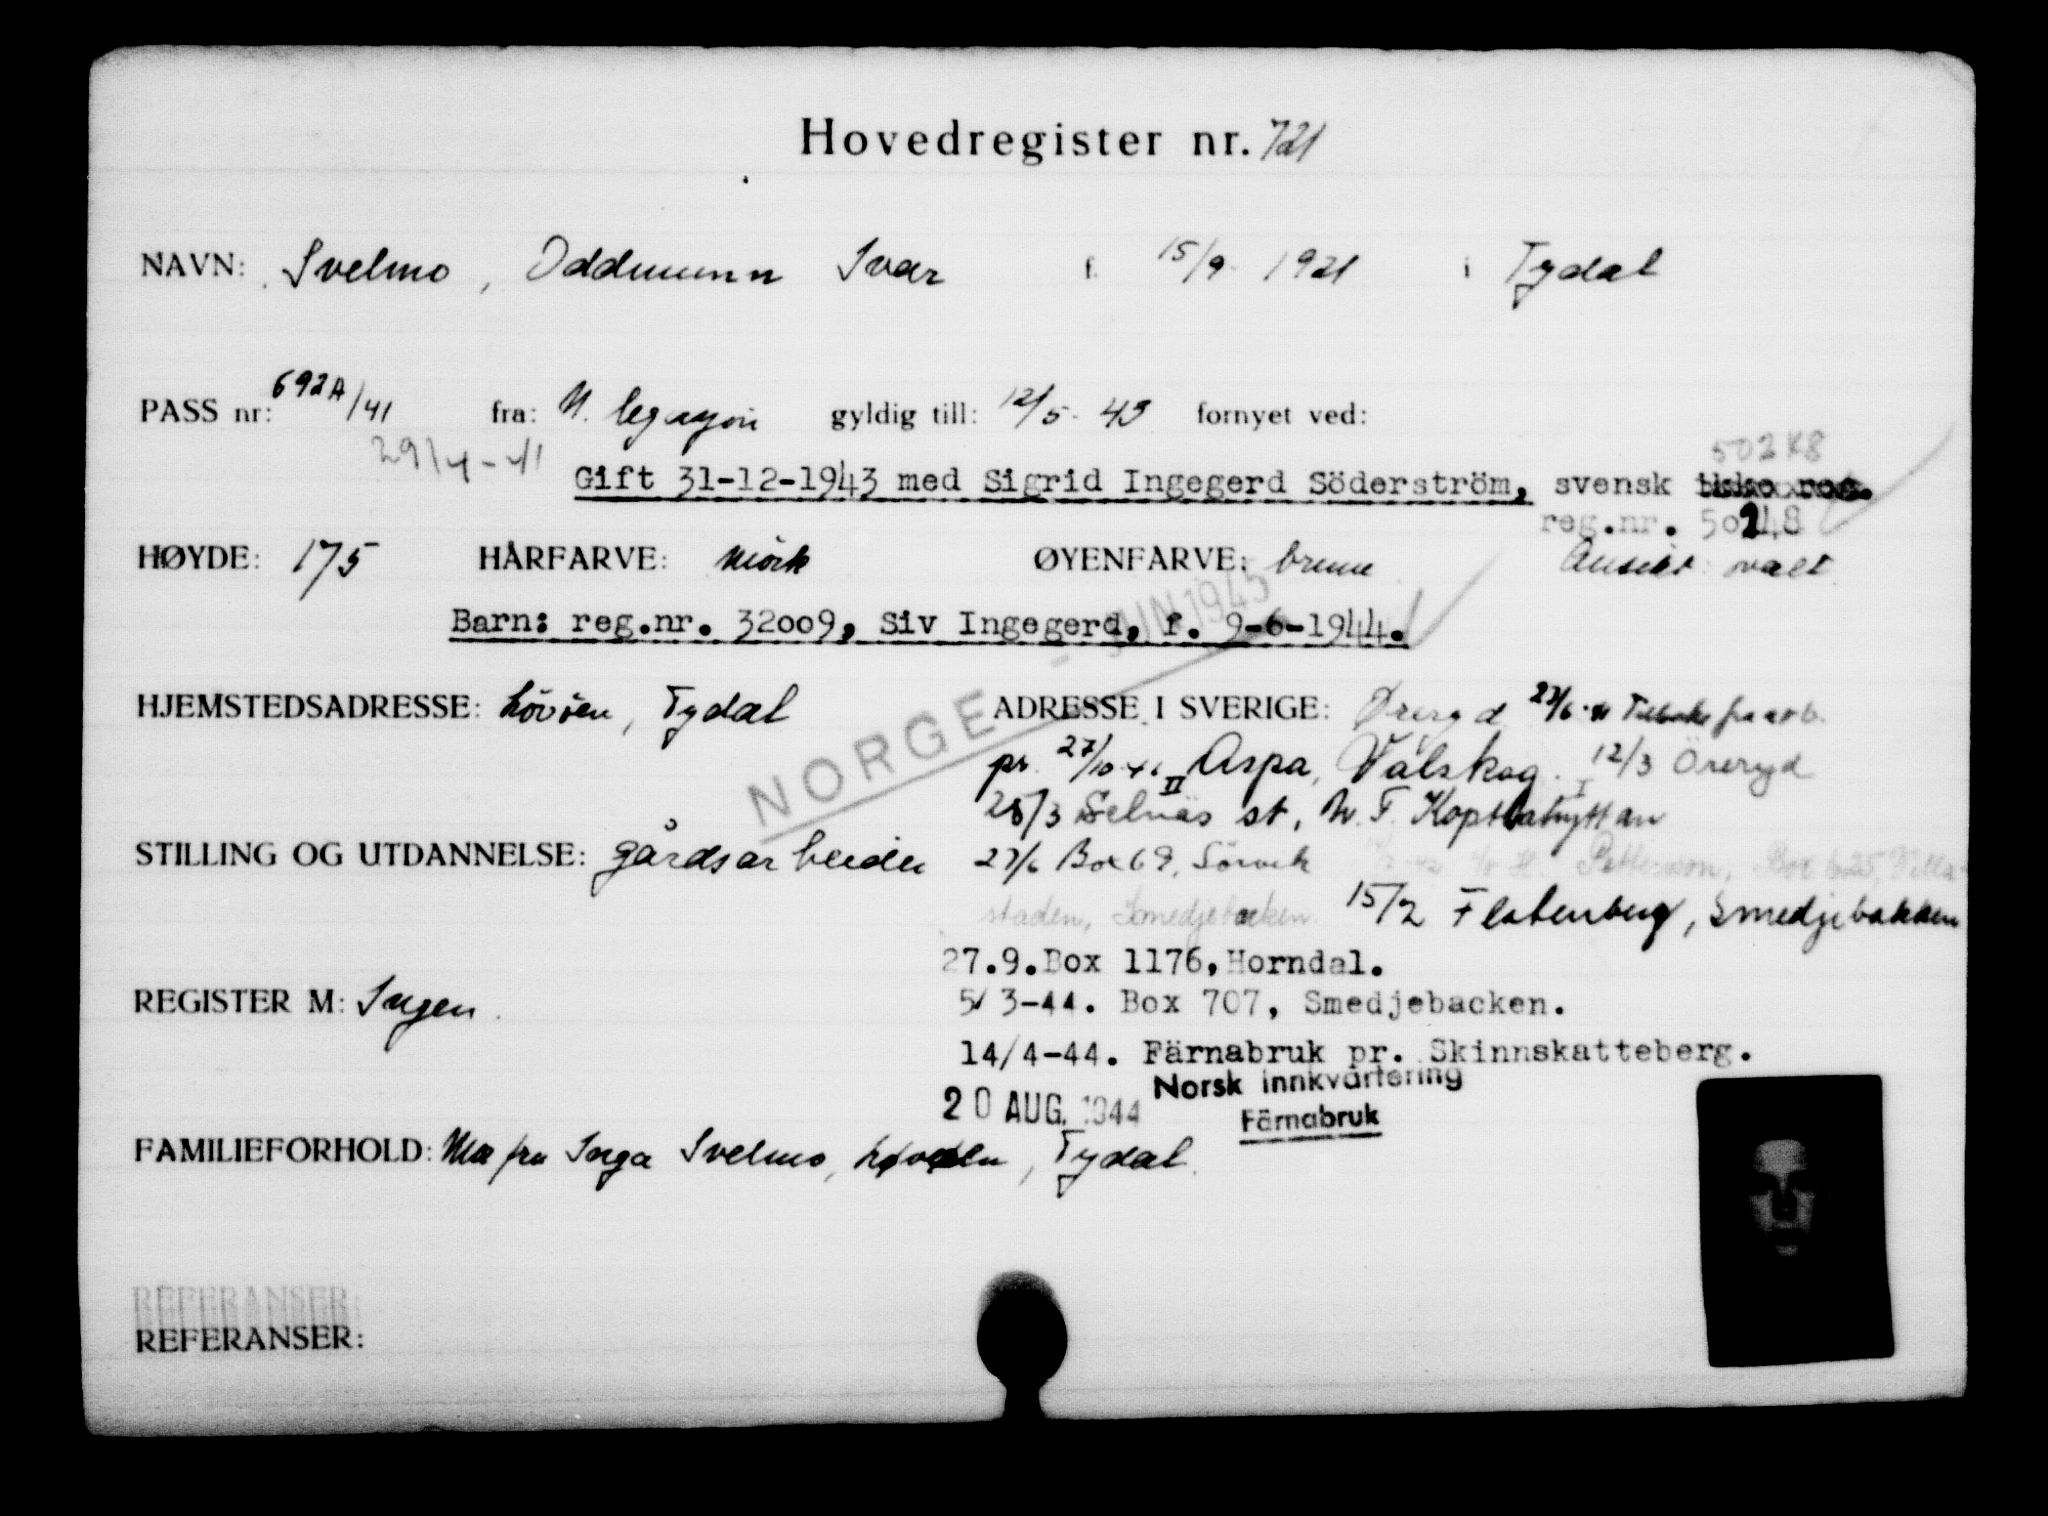 Hovedregister nr. 721
NAVN: Svelmo, Oddmunn Ivar f. 15/9 1921 i Tydal
PASS nr: 692A/41 fra: N. legasjon gyldig till: 12/5-43 fornyet ved:
29/4-41
50248
Gift 31-12-1943 med Sigrid Ingegerd Söderström, svensk ikke reg.
reg.nr. 50248
HØYDE: 175 HÅRFARVE: mörk ØYENFARVE: brune Ansikt: ovalt
Barn: reg.nr. 32009, Siv Ingegerd, f. 9-6-1944.
NORGE - JUN 1945
HJEMSTEDSADRESSE: Lövöen, Tydal ADRESSE I SVERIGE: Øreryd 27/6 Tilbake fra arb.
pr. 27/10-41 II Aspa, Valskog. I 12/3 Öreryd
28/3 Selnäs st,
STILLING OG UTDANNELSE: gårdsarbeider 27/6 Box 69, Sörvik Pettersson, Box 625,
staden, Smedjebacken 15/2 Flatenberg, Smedjebakken
27.9. Box 1176, Horndal.
REGISTER M: Ingen. 5/3-44. Box 707, Smedjebacken.
14/4-44. Färnabruk pr. Skinnskatteberg.
20 AUG. 1944 Norsk innkvartering
Färnabruk
FAMILIEFORHOLD: Mor fru Inga Svelmo, Løvøen, Tydal.
REFERANSER:
REFERANSER: